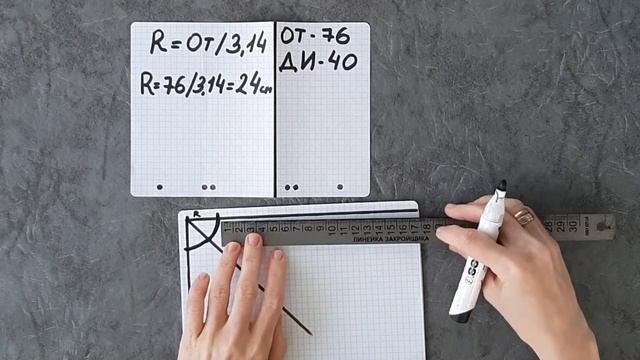 R = ОТ/3,14
R=76/3,14=24см
ОТ - 76
ДИ - 40
R
1 2 3 4 5 6 7 8 9 10 11 12 13 14 15 16 17 18 28 29 30
ЛИНЕЙКА ЗАКРОЙЩИКА